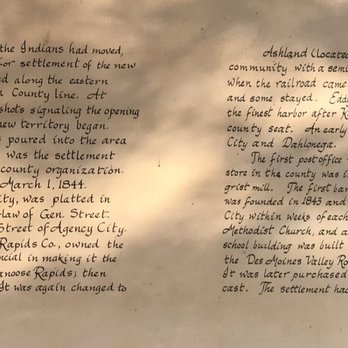 the Indians had moved,
for settlement of the new
along the eastern
County line. At
shots signaling the opening
new territory began.
poured into the area
was the settlement
county organization.
March 1, 1844.
ity, was platted in
law of Gen. Street.
Street of Agency City.
Rapids Co., owned the
ncial in making it the
anoose Rapids; then
It was again changed to
Ashland (Locate
community with a sem
when the railroad came
and some stayed. Edd
the finest harbor after K
county seat. An early
City and Dahlonega.
The first post office
store in the county was i
grist mill. The first ba
was founded in 1843 and
City within weeks of each
Methodist Church, and a
school building was built
the Des Moines Valley Ro
It was later purchased
cast. The settlement had